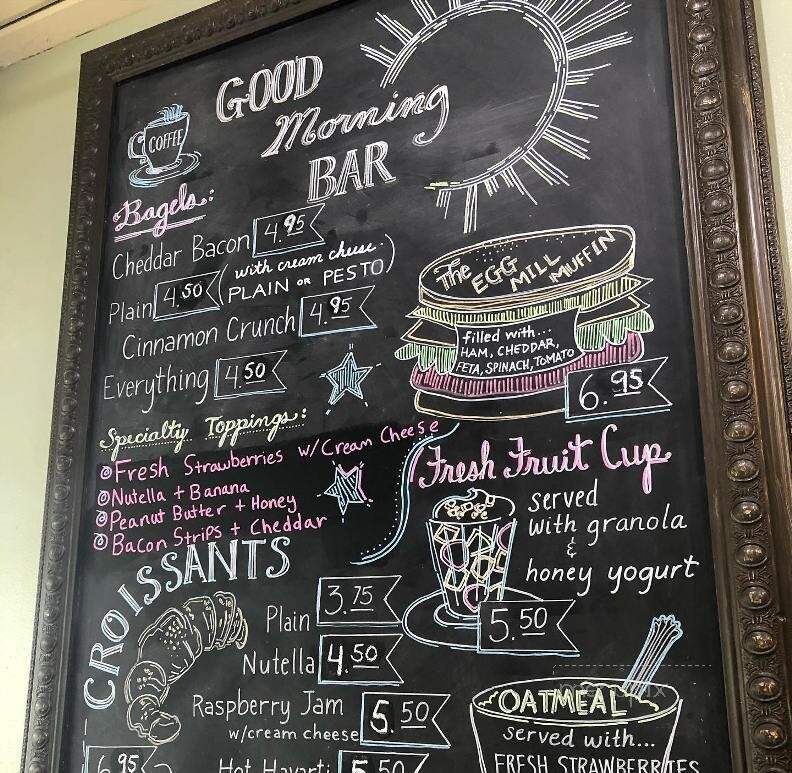 GOOD
Morning
BAR
COFFEE
Bagels:
Cheddar Bacon 4.95
Plain 4.50 (with cream cheese. PLAIN OR PESTO)
Cinnamon Crunch 4.95
Everything 4.50
Specialty Toppings:
Fresh Strawberries w/Cream Cheese
Nutella + Banana
Peanut Butter + Honey
Bacon Strips + Cheddar
CROISSANTS
Plain 3.75
Nutella 4.50
Raspberry Jam 5.50
w/cream cheese
6.95
Hot Havarti 5.50
The EGG MILL MUFFIN
filled with...
HAM, CHEDDAR,
FETA, SPINACH, TOMATO
6.95
Fresh Fruit Cup
served
with granola
&
honey yogurt
5.50
OATMEAL
served with...
FRESH STRAWBERRIES